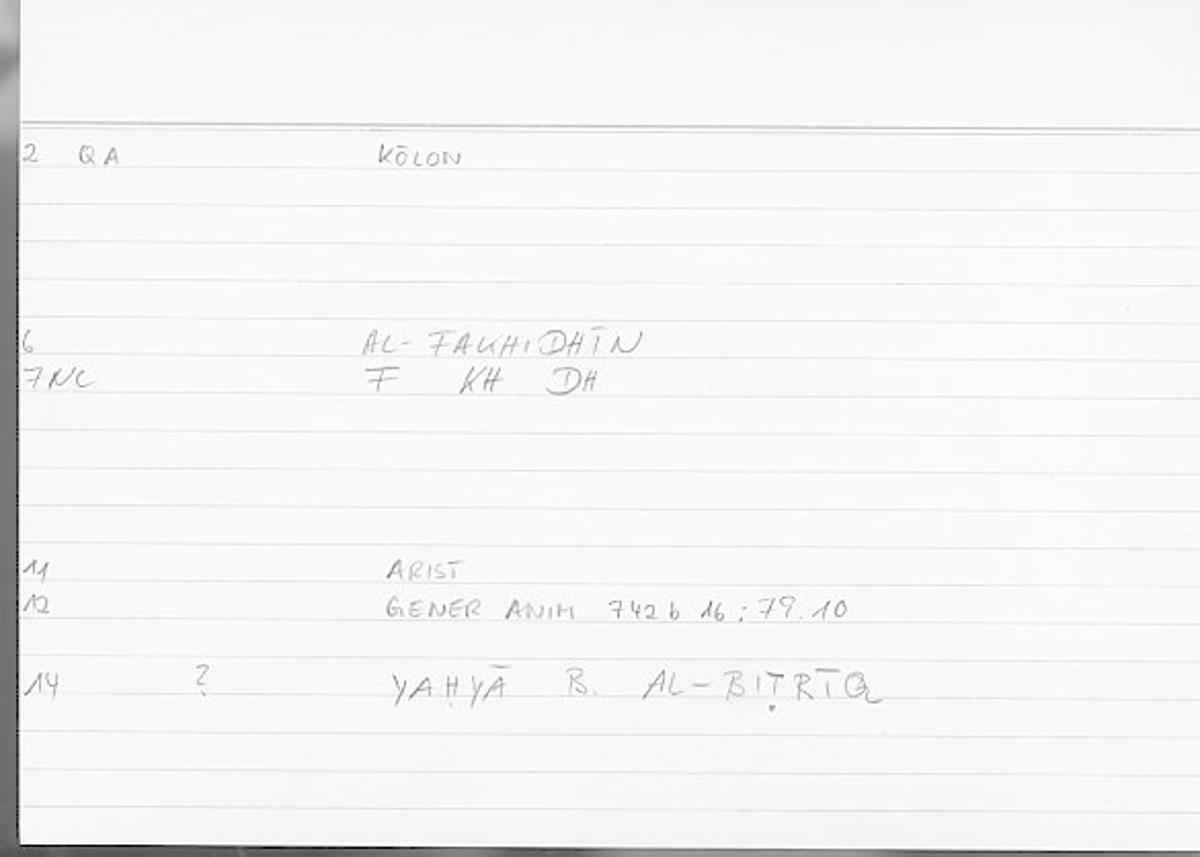 2 QA KŌLON
6 AL-FAKHIDHĪN
7NC F KH DH
11 ARIST
12 GENER ANIM 742 b 16 : 79.10
14 ? YAḤYĀ B. AL-BIṬRĪQ